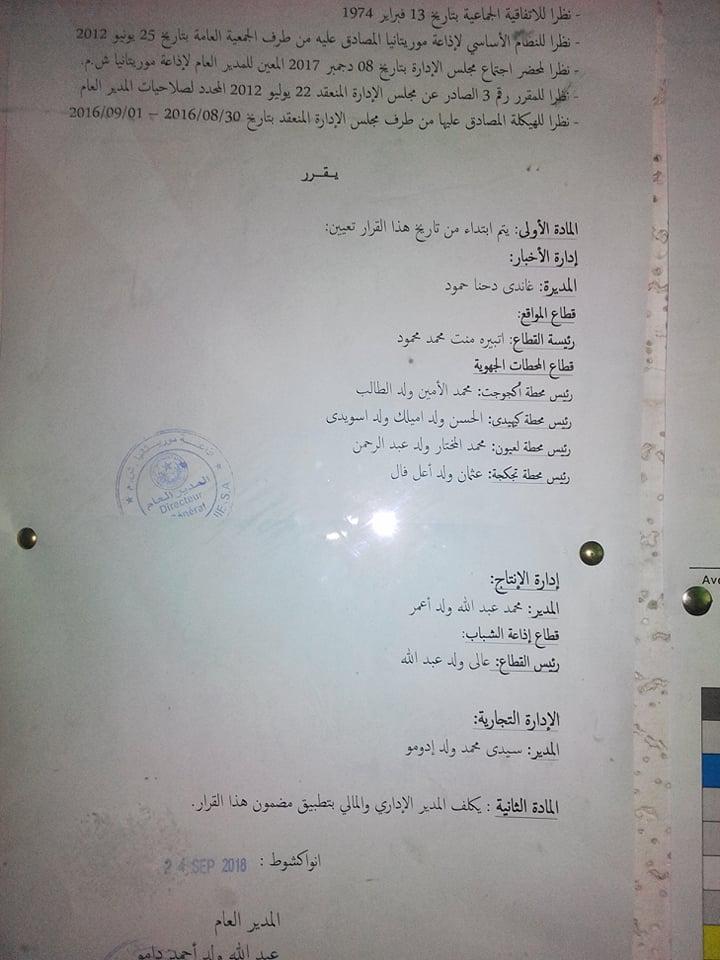 - نظرا للاتفاقية الجماعية بتاريخ 13 فبراير 1974
- نظرا للنظام الأساسي لإذاعة موريتانيا المصادق عليه من طرف الجمعية العامة بتاريخ 25 يونيو 2012
- نظرا لمحضر اجتماع مجلس الإدارة بتاريخ 08 دجمبر 2017 المعين للمدير العام لإذاعة موريتانيا ش.م.
- نظرا للمقرر رقم 3 الصادر عن مجلس الإدارة المنعقد 22 يوليو 2012 المحدد لصلاحيات المدير العام
- نظرا للهيكلة المصادق عليها من طرف مجلس الإدارة المنعقد بتاريخ 2016/08/30 – 2016/09/01
يـقـرر
المادة الأولى: يتم ابتداء من تاريخ هذا القرار تعيين:
إدارة الأخبار:
المديرة: غاندى دحنا حمود
قطاع المواقع:
رئيسة القطاع: اتبيره منت محمد محمود
قطاع المحطات الجهوية
رئيس محطة أكجوجت: محمد الأمين ولد الطالب
رئيس محطة كيهيدى: الحسن ولد امبلك ولد اسويدى
رئيس محطة لعيون: محمد المختار ولد عبد الرحمن
رئيس محطة تجكجة: عثمان ولد أعل فال
المدير العام
Directeur
Général
إدارة الإنتاج:
المدير: محمد عبد الله ولد أعمر
قطاع إذاعة الشباب:
رئيس القطاع: عالى ولد عبد الله
الإدارة التجارية:
المدير: سيدى محمد ولد إدومو
المادة الثانية : يكلف المدير الإداري والمالي بتطبيق مضمون هذا القرار.
انواكشوط : 24 SEP 2018
المدير العام
عبد الله ولد أحمد دامو